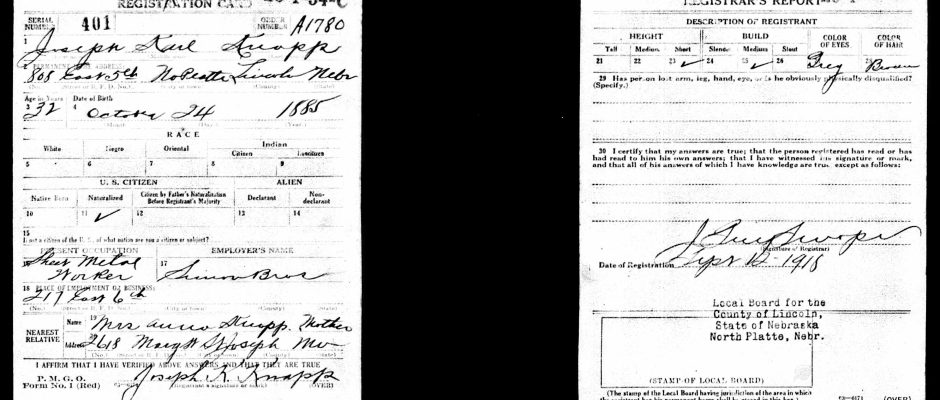 REGISTRATION CARD
SERIAL NUMBER 401 ORDER NUMBER A1780
1 Joseph Karl Knapp
2 PERMANENT HOME ADDRESS:
808 East 5th No Platte Lincoln Nebr
Age in Years Date of Birth
3 32 4 October 24 1885
RACE
White Negro Oriental Indian
Citizen Noncitizen
5 6 7 8 9
U. S. CITIZEN ALIEN
Native Born Naturalized Citizen by Father's Naturalization Before Registrant's Majority Declarant Non-declarant
10 11 ✓ 12 13 14
15
If not a citizen of the U. S., of what nation are you a citizen or subject?
PRESENT OCCUPATION EMPLOYER'S NAME
16 Sheet Metal Worker 17 Simon Bros
18 PLACE OF EMPLOYMENT OR BUSINESS:
217 East 6th
(No.) (County) (State)
NEAREST RELATIVE
Name 19 Mrs Knapp. Mother
Address 20 2618 St Joseph Mo
I AFFIRM THAT I HAVE VERIFIED ABOVE ANSWERS AND THAT THEY ARE TRUE
P. M. G. O.
Form No. 1 (Red) Joseph K. Knapp
(Registrant's signature or mark) (OVER)
REGISTRAR'S REPORT
DESCRIPTION OF REGISTRANT
HEIGHT BUILD COLOR OF EYES COLOR OF HAIR
Tall Medium Short Slender Medium Stout
21 22 23 ✓ 24 25 ✓ 26 27 Grey 28 Brown
29 Has person lost arm, leg, hand, eye, or is he obviously physically disqualified?
(Specify.)
30 I certify that my answers are true; that the person registered has read or has
had read to him his own answers; that I have witnessed his signature or mark,
and that all of his answers of which I have knowledge are true, except as follows:
(Signature of Registrar)
Date of Registration Sept 12 1918
Local Board for the
County of Lincoln,
State of Nebraska
North Platte, Nebr.
(STAMP OF LOCAL BOARD)
(The stamp of the Local Board having jurisdiction of the area in which
the registrant has his permanent home shall be placed in this box.)
(OVER)